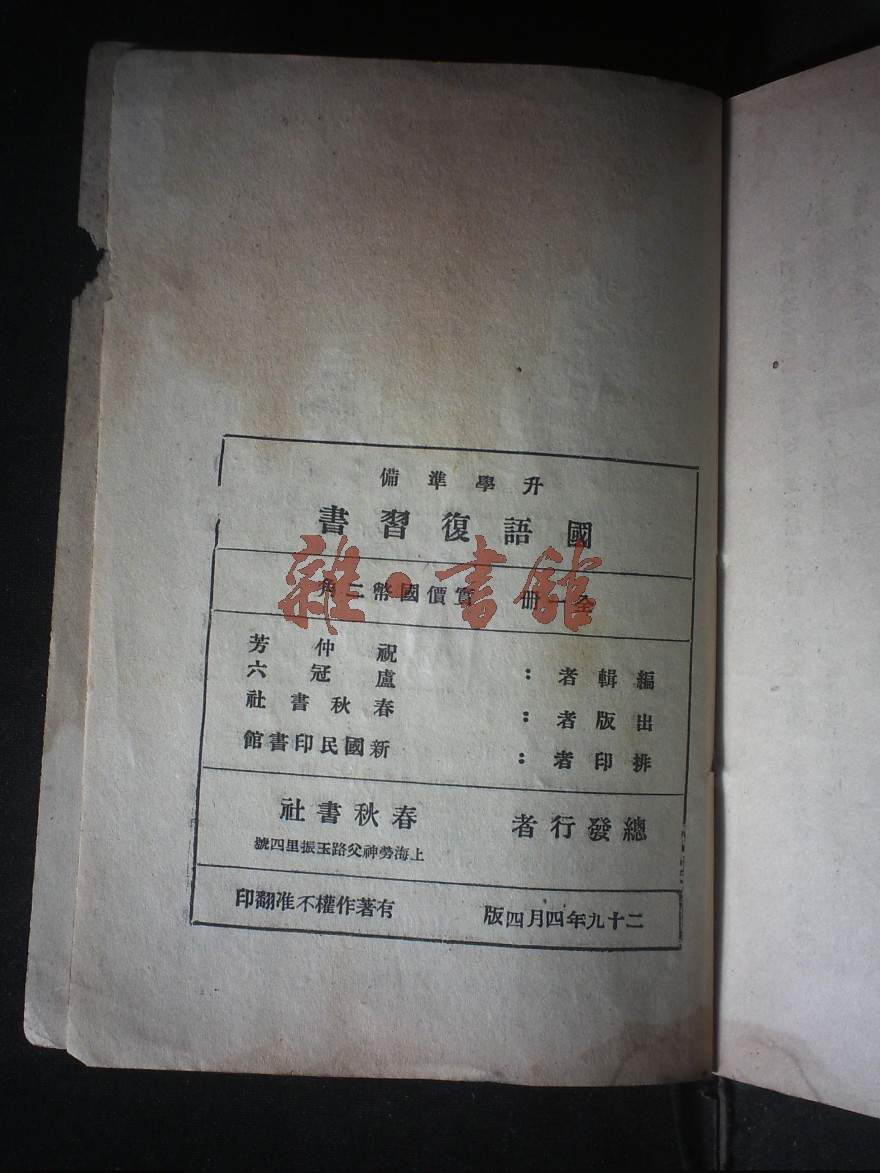 升學準備
國語復習書
全一冊 實價國幣二角
編輯者：祝仲芳
盧冠六
出版者：春秋書社
排印者：新國民印書館
總發行者 春秋書社
上海勞神父路玉振里四號
二十九年四月四版 有著作權不准翻印
雜·書館